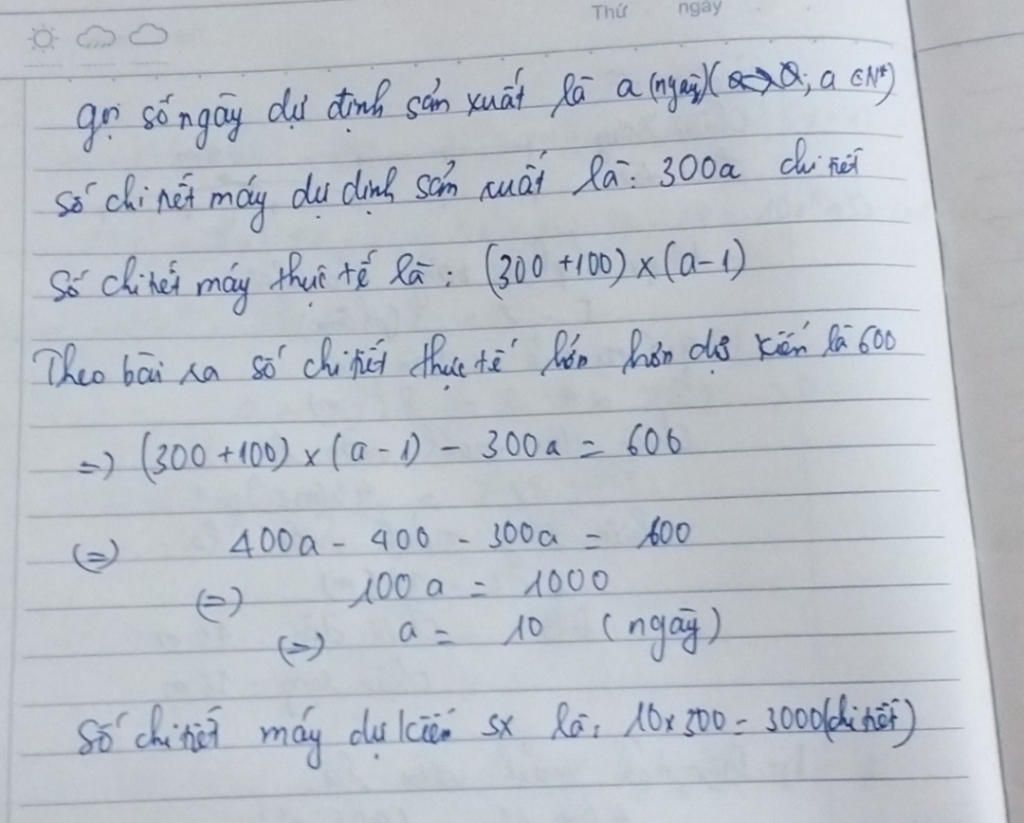 Thứ ngày
gọi số ngày dự định sản xuất là a (ngày) (a > 0; a ∈ N*)
số chi tiết máy dự định sản xuất là: 300a chi tiết
số chi tiết máy thực tế là: (300 +100) x (a-1)
Theo bài ra số chi tiết thực tế lớn hơn dự kiến là 600
=> (300 +100) x (a - 1) - 300a = 600
(=) 400a - 400 - 300a = 600
(=) 100 a = 1000
(=) a = 10 (ngày)
số chi tiết máy dự kiến sx là: 10 x 300 = 3000 (chi tiết)